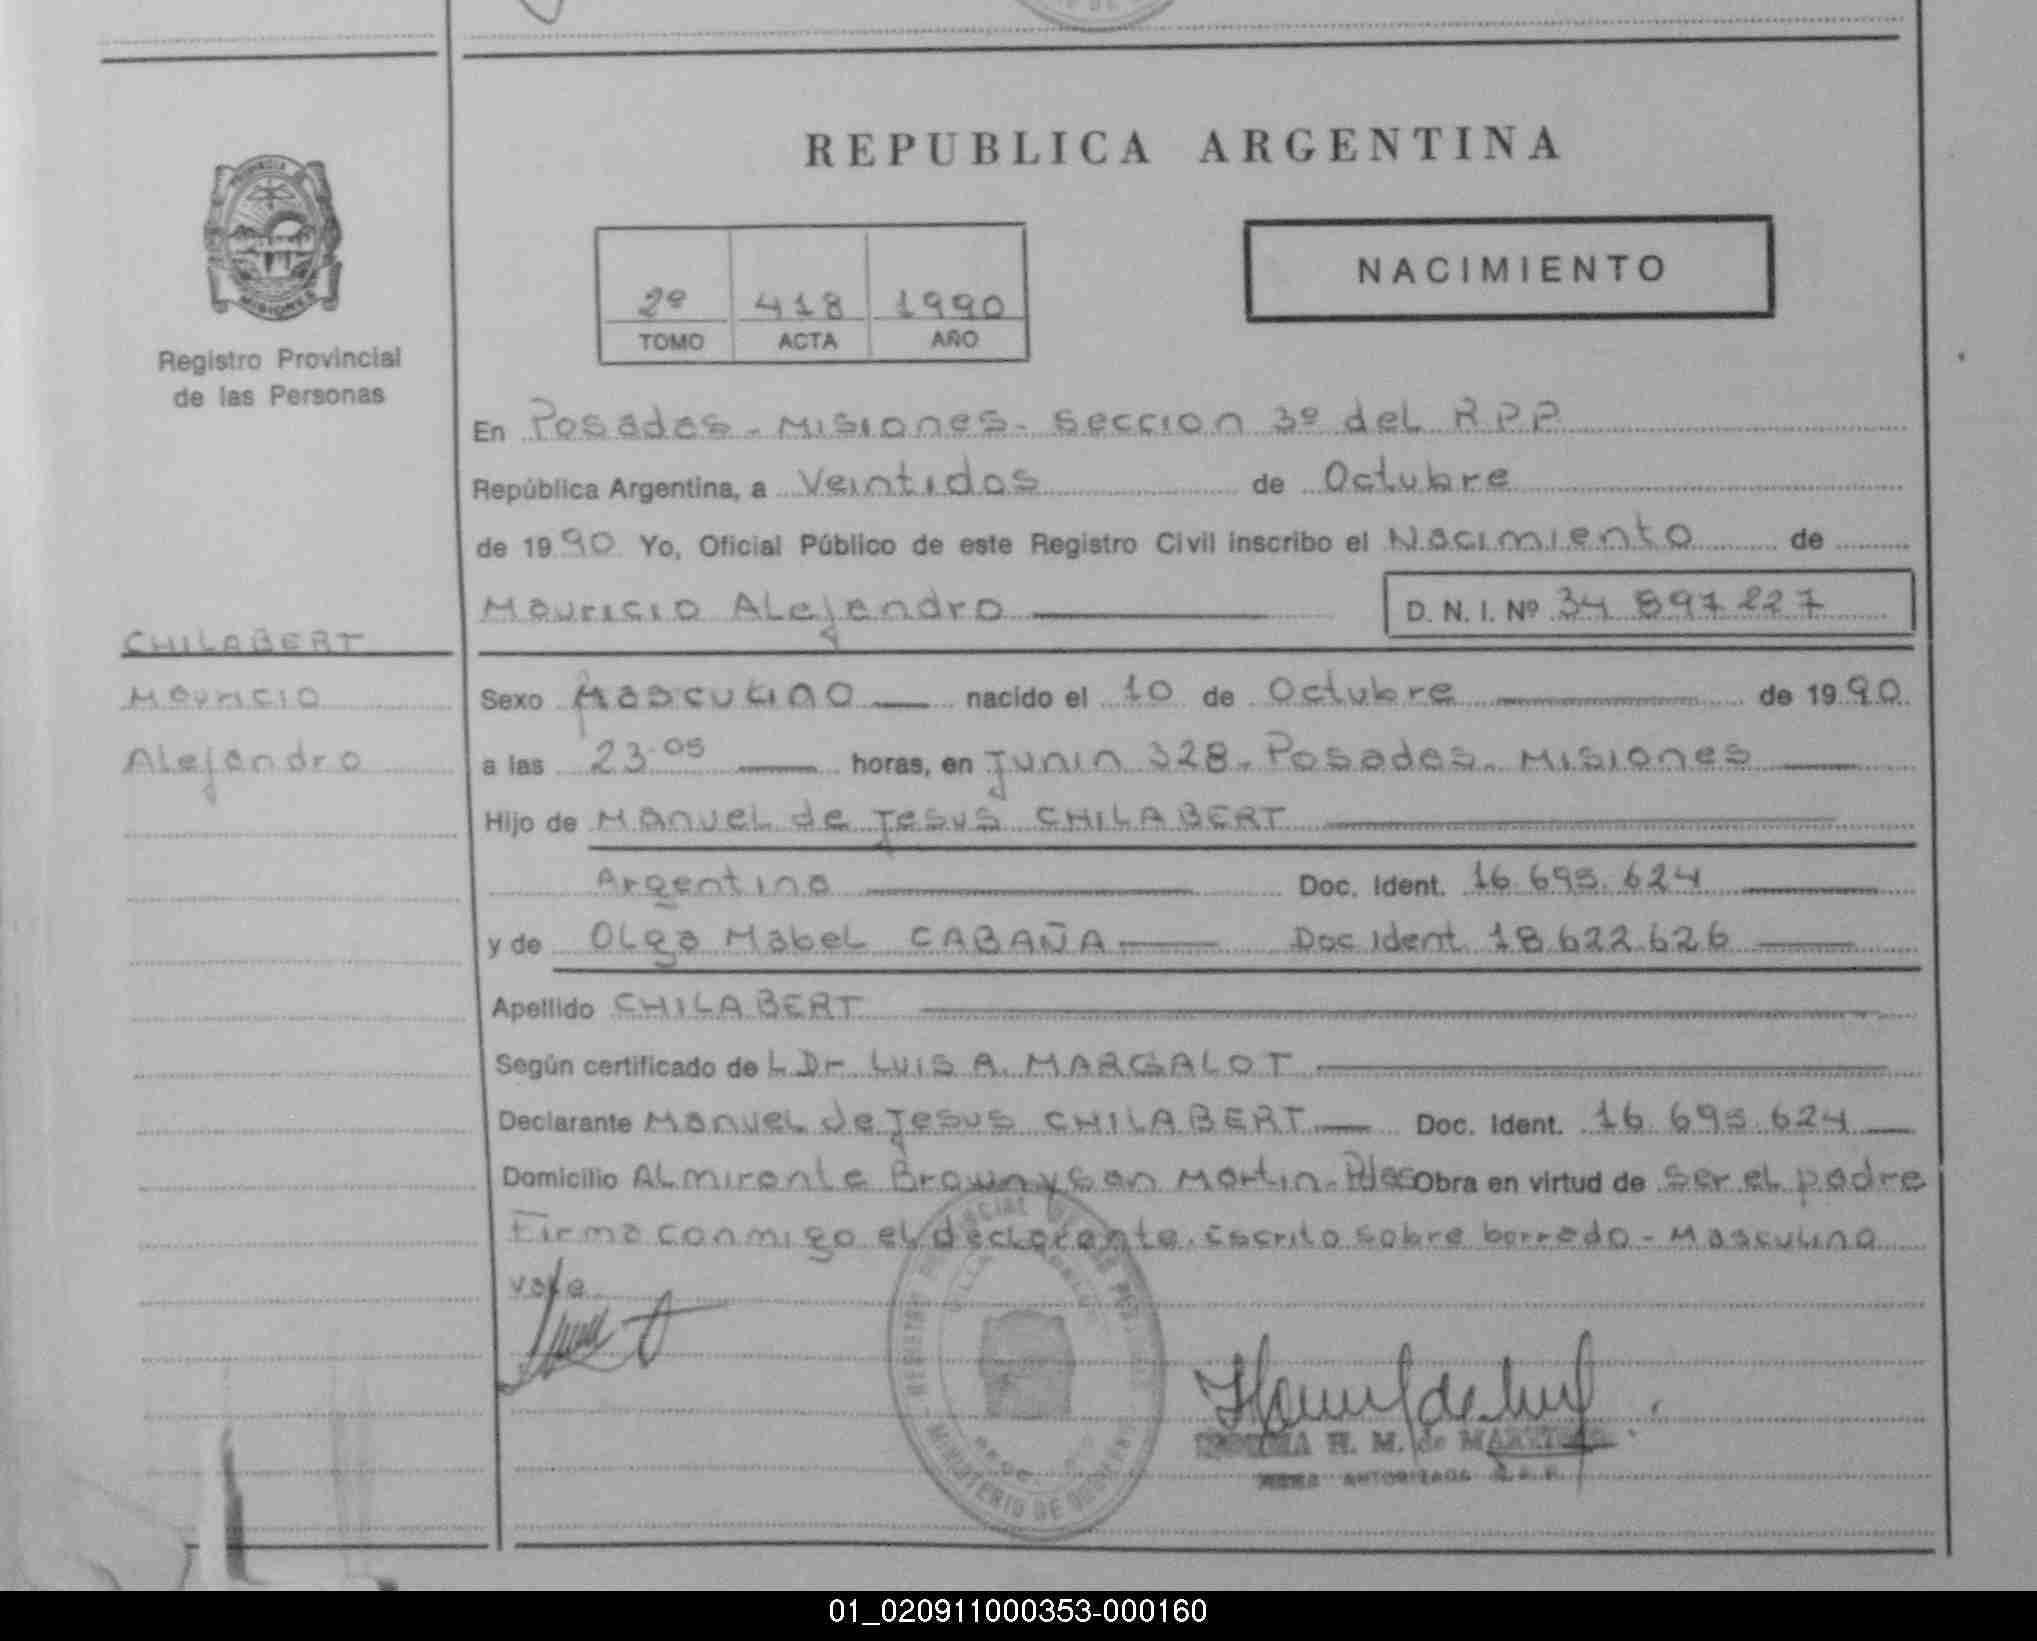 REPUBLICA ARGENTINA
PROVINCIA
MISIONES
Registro Provincial
de las Personas
2º 418 1990
TOMO ACTA AÑO
NACIMIENTO
En Posadas - Misiones - Seccion 3º del R P P
República Argentina, a Veintidos de Octubre
de 1990 Yo, Oficial Público de este Registro Civil inscribo el Nacimiento de
Mauricio Alejandro D. N. I. Nº 34 897 227
CHILABERT
Mauricio
Alejandro
Sexo Masculino nacido el 10 de Octubre de 1990.
a las 23 05 horas, en Junin 328 - Posadas - Misiones
Hijo de Manuel de Jesus CHILABERT
Argentino Doc. Ident. 16.695.624
y de Olga Mabel CABAÑA Doc Ident 18.622.626
Apellido CHILABERT
Según certificado de L Dr LUIS A. MARGALOT
Declarante Manuel de Jesus CHILABERT Doc. Ident. 16.695.624
Domicilio Almirante Brown y San Martin - Pdas Obra en virtud de ser el padre
Firma conmigo el declarante. Escrito sobre borrado - Masculino
vale
H. M. de
AUTORIZADA
MINISTERIO DE
01_020911000353-000160